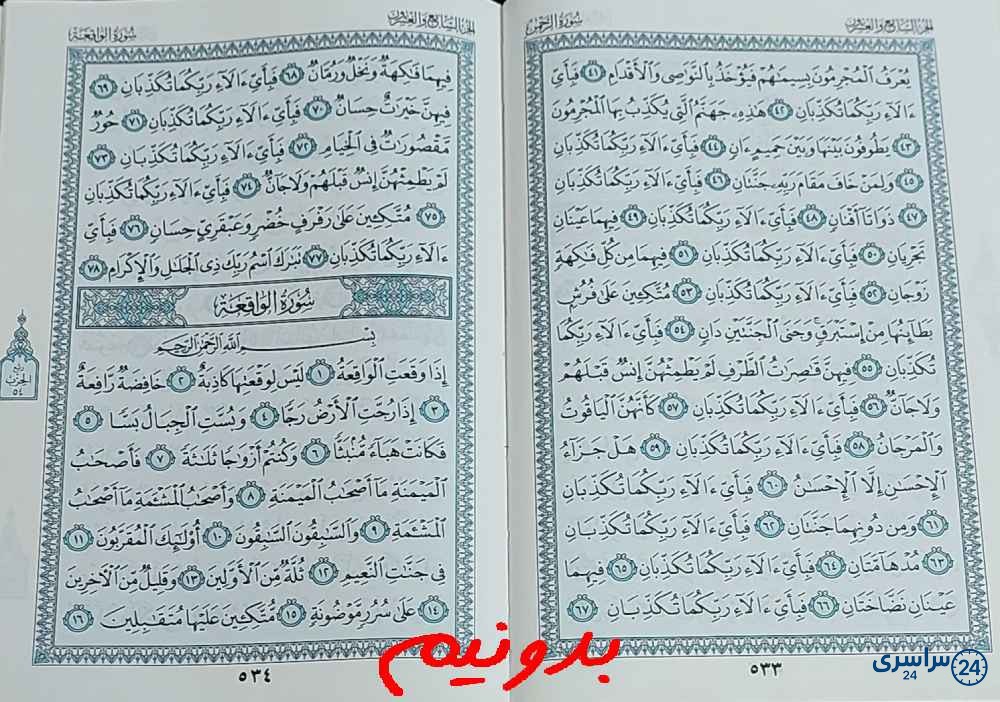 الجزء السابع والعشرون
سورة الرحمن
يُعْرَفُ الْمُجْرِمُونَ بِسِيمَاهُمْ فَيُؤْخَذُ بِالنَّوَاصِي وَالْأَقْدَامِ ٤١ فَبِأَيِّ
ءَالَاءِ رَبِّكُمَا تُكَذِّبَانِ ٤٢ هَٰذِهِ جَهَنَّمُ الَّتِي يُكَذِّبُ بِهَا الْمُجْرِمُونَ
٤٣ يَطُوفُونَ بَيْنَهَا وَبَيْنَ حَمِيمٍ ءَانٍ ٤٤ فَبِأَيِّ ءَالَاءِ رَبِّكُمَا تُكَذِّبَانِ
٤٥ وَلِمَنْ خَافَ مَقَامَ رَبِّهِ جَنَّتَانِ ٤٦ فَبِأَيِّ ءَالَاءِ رَبِّكُمَا تُكَذِّبَانِ
٤٧ ذَوَاتَا أَفْنَانٍ ٤٨ فَبِأَيِّ ءَالَاءِ رَبِّكُمَا تُكَذِّبَانِ ٤٩ فِيهِمَا عَيْنَانِ
تَجْرِيَانِ ٥٠ فَبِأَيِّ ءَالَاءِ رَبِّكُمَا تُكَذِّبَانِ ٥١ فِيهِمَا مِن كُلِّ فَاكِهَةٍ
زَوْجَانِ ٥٢ فَبِأَيِّ ءَالَاءِ رَبِّكُمَا تُكَذِّبَانِ ٥٣ مُتَّكِئِينَ عَلَىٰ فُرُشٍ
بَطَائِنُهَا مِنْ إِسْتَبْرَقٍ وَجَنَى الْجَنَّتَيْنِ دَانٍ ٥٤ فَبِأَيِّ ءَالَاءِ رَبِّكُمَا
تُكَذِّبَانِ ٥٥ فِيهِنَّ قَاصِرَاتُ الطَّرْفِ لَمْ يَطْمِثْهُنَّ إِنسٌ قَبْلَهُمْ
وَلَا جَانٌّ ٥٦ فَبِأَيِّ ءَالَاءِ رَبِّكُمَا تُكَذِّبَانِ ٥٧ كَأَنَّهُنَّ الْيَاقُوتُ
وَالْمَرْجَانُ ٥٨ فَبِأَيِّ ءَالَاءِ رَبِّكُمَا تُكَذِّبَانِ ٥٩ هَلْ جَزَاءُ
الْإِحْسَانِ إِلَّا الْإِحْسَانُ ٦٠ فَبِأَيِّ ءَالَاءِ رَبِّكُمَا تُكَذِّبَانِ
٦١ وَمِن دُونِهِمَا جَنَّتَانِ ٦٢ فَبِأَيِّ ءَالَاءِ رَبِّكُمَا تُكَذِّبَانِ
٦٣ مُدْهَامَّتَانِ ٦٤ فَبِأَيِّ ءَالَاءِ رَبِّكُمَا تُكَذِّبَانِ ٦٥ فِيهِمَا
عَيْنَانِ نَضَّاخَتَانِ ٦٦ فَبِأَيِّ ءَالَاءِ رَبِّكُمَا تُكَذِّبَانِ ٦٧
٥٣٣
الجزء السابع والعشرون
سورة الواقعة
فِيهِمَا فَاكِهَةٌ وَنَخْلٌ وَرُمَّانٌ ٦٨ فَبِأَيِّ ءَالَاءِ رَبِّكُمَا تُكَذِّبَانِ ٦٩
فِيهِنَّ خَيْرَاتٌ حِسَانٌ ٧٠ فَبِأَيِّ ءَالَاءِ رَبِّكُمَا تُكَذِّبَانِ ٧١ حُورٌ
مَّقْصُورَاتٌ فِي الْخِيَامِ ٧٢ فَبِأَيِّ ءَالَاءِ رَبِّكُمَا تُكَذِّبَانِ ٧٣
لَمْ يَطْمِثْهُنَّ إِنسٌ قَبْلَهُمْ وَلَا جَانٌّ ٧٤ فَبِأَيِّ ءَالَاءِ رَبِّكُمَا تُكَذِّبَانِ
٧٥ مُتَّكِئِينَ عَلَىٰ رَفْرَفٍ خُضْرٍ وَعَبْقَرِيٍّ حِسَانٍ ٧٦ فَبِأَيِّ
ءَالَاءِ رَبِّكُمَا تُكَذِّبَانِ ٧٧ تَبَارَكَ اسْمُ رَبِّكَ ذِي الْجَلَالِ وَالْإِكْرَامِ ٧٨
سُورَةُ الْوَاقِعَةِ
بِسْمِ اللَّهِ الرَّحْمَٰنِ الرَّحِيمِ
إِذَا وَقَعَتِ الْوَاقِعَةُ ١ لَيْسَ لِوَقْعَتِهَا كَاذِبَةٌ ٢ خَافِضَةٌ رَّافِعَةٌ
٣ إِذَا رُجَّتِ الْأَرْضُ رَجًّا ٤ وَبُسَّتِ الْجِبَالُ بَسًّا ٥
فَكَانَتْ هَبَاءً مُّنبَثًّا ٦ وَكُنتُمْ أَزْوَاجًا ثَلَاثَةً ٧ فَأَصْحَابُ
الْمَيْمَنَةِ مَا أَصْحَابُ الْمَيْمَنَةِ ٨ وَأَصْحَابُ الْمَشْئَمَةِ مَا أَصْحَابُ
الْمَشْئَمَةِ ٩ وَالسَّابِقُونَ السَّابِقُونَ ١٠ أُولَٰئِكَ الْمُقَرَّبُونَ ١١
فِي جَنَّاتِ النَّعِيمِ ١٢ ثُلَّةٌ مِّنَ الْأَوَّلِينَ ١٣ وَقَلِيلٌ مِّنَ الْآخِرِينَ
١٤ عَلَىٰ سُرُرٍ مَّوْضُونَةٍ ١٥ مُّتَّكِئِينَ عَلَيْهَا مُتَقَابِلِينَ ١٦
ربع
الحزب
٥٤
٥٣٤
بدونیم
سراسری
24
24